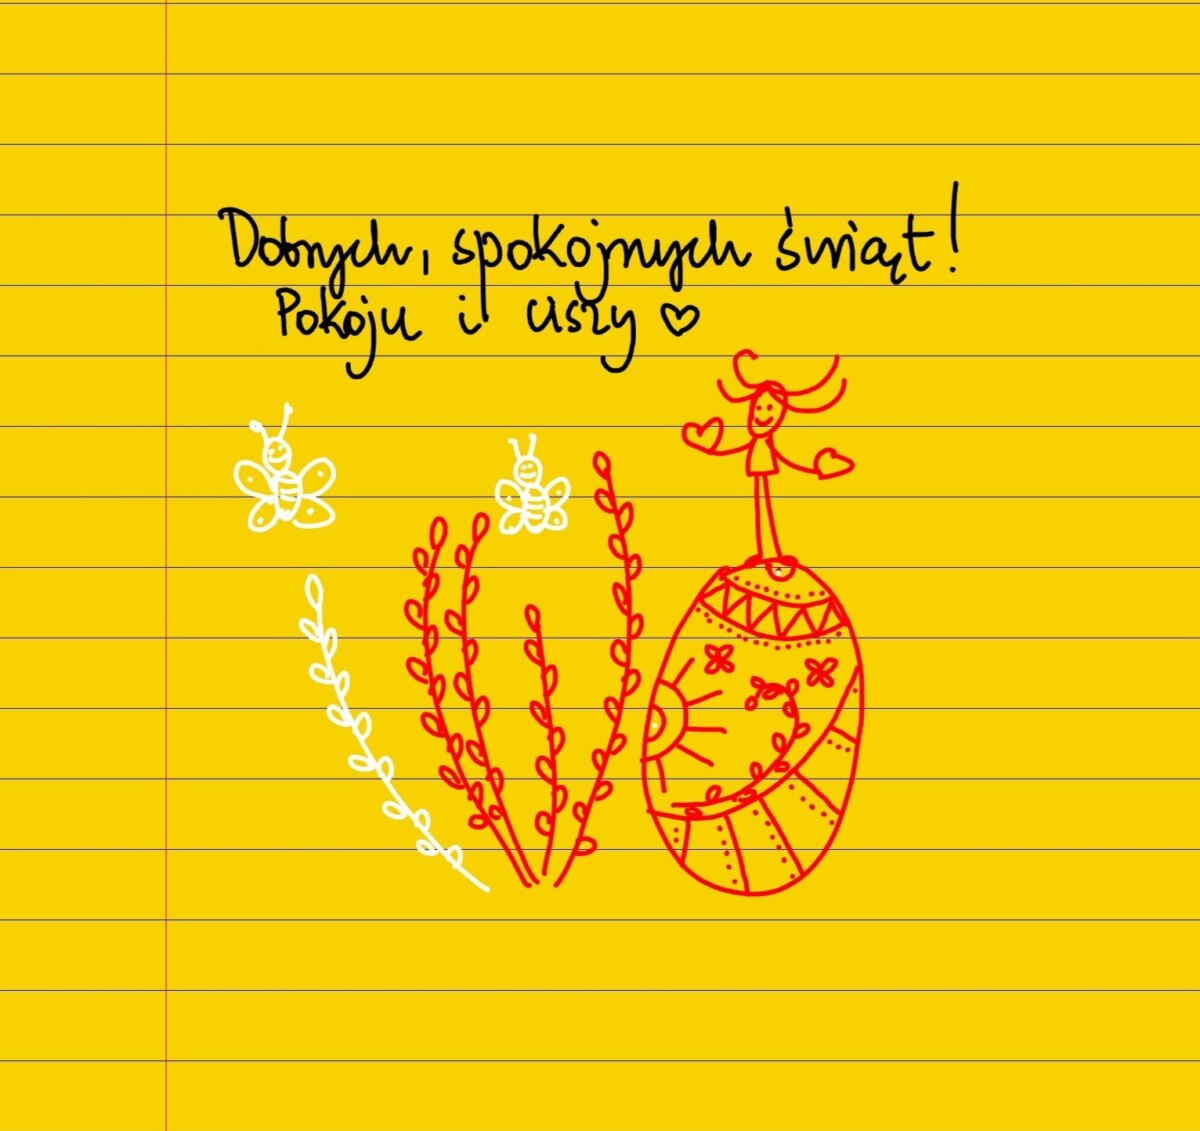 Dobrych, spokojnych świąt!
Pokoju i ciszy ♡